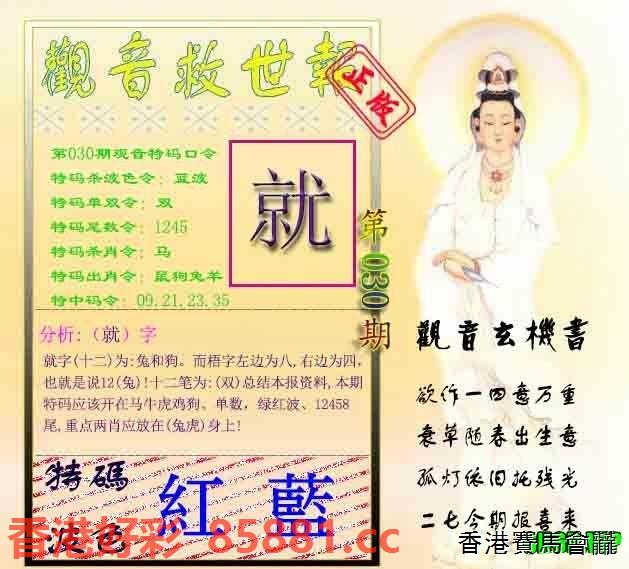 觀音救世報
正版
第030期观音特码口令
特码杀波色令：蓝波
特码单双令：双
特码尾数令：1245
特码杀肖令：马
特码出肖令：鼠狗兔羊
特中码令：09.21.23.35
就
第030期
分析:（就）字
就字(十二)为:兔和狗。而梧字左边为八,右边为四，
也就是说12(兔)!十二笔为:(双)总结本报资料,本期
特码应该开在马牛虎鸡狗、单数，绿红波、12458
尾,重点两肖应放在(兔虎)身上!
特碼
波色
紅 藍
觀音玄機書
欲作一四意万重
衰草随春出生意
孤灯依旧托残光
二七今期报喜来
香港好彩 85881.cc
香港賽馬會